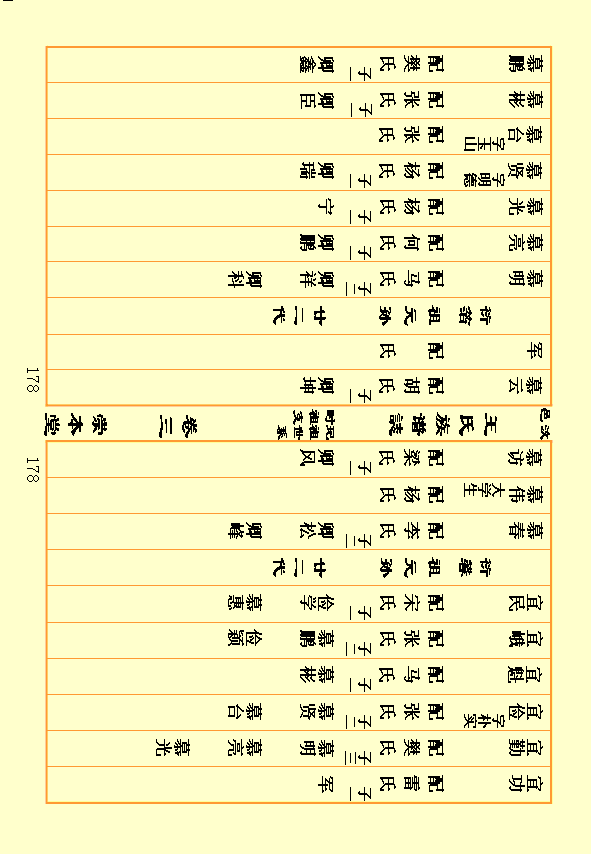 宜功 配雷氏 子一 军
宜勤 配樊氏 子三 慕明 慕亮 慕光
宜俭 字朴实 配张氏 子二 慕贤 慕台
宜魁 配马氏 子一 慕彬
宜峨 配张氏 子二 慕鹏 俭颖
宜民 配宋氏 子二 俭学 慕惠
衍馨祖元孙 廿二代
慕春 配李氏 子二 卿松 卿峰
慕伟 大学生 配杨氏
慕访 配梁氏 子一 卿风
178
汶邑 王氏族谱誌 时玘祖祖支世系 卷三 崇本堂
178
慕云 配胡氏 子一 卿坤
军 配 氏
衍 祖元孙 廿二代
慕明 配马氏 子二 卿祥 卿科
慕亮 配何氏 子一 卿鹏
慕光 配杨氏 子一 宁
慕贤 字明德 配杨氏 子一 卿瑞
慕台 字玉山 配张氏
慕彬 配张氏 子一 卿臣
慕鹏 配樊氏 子一 卿鑫